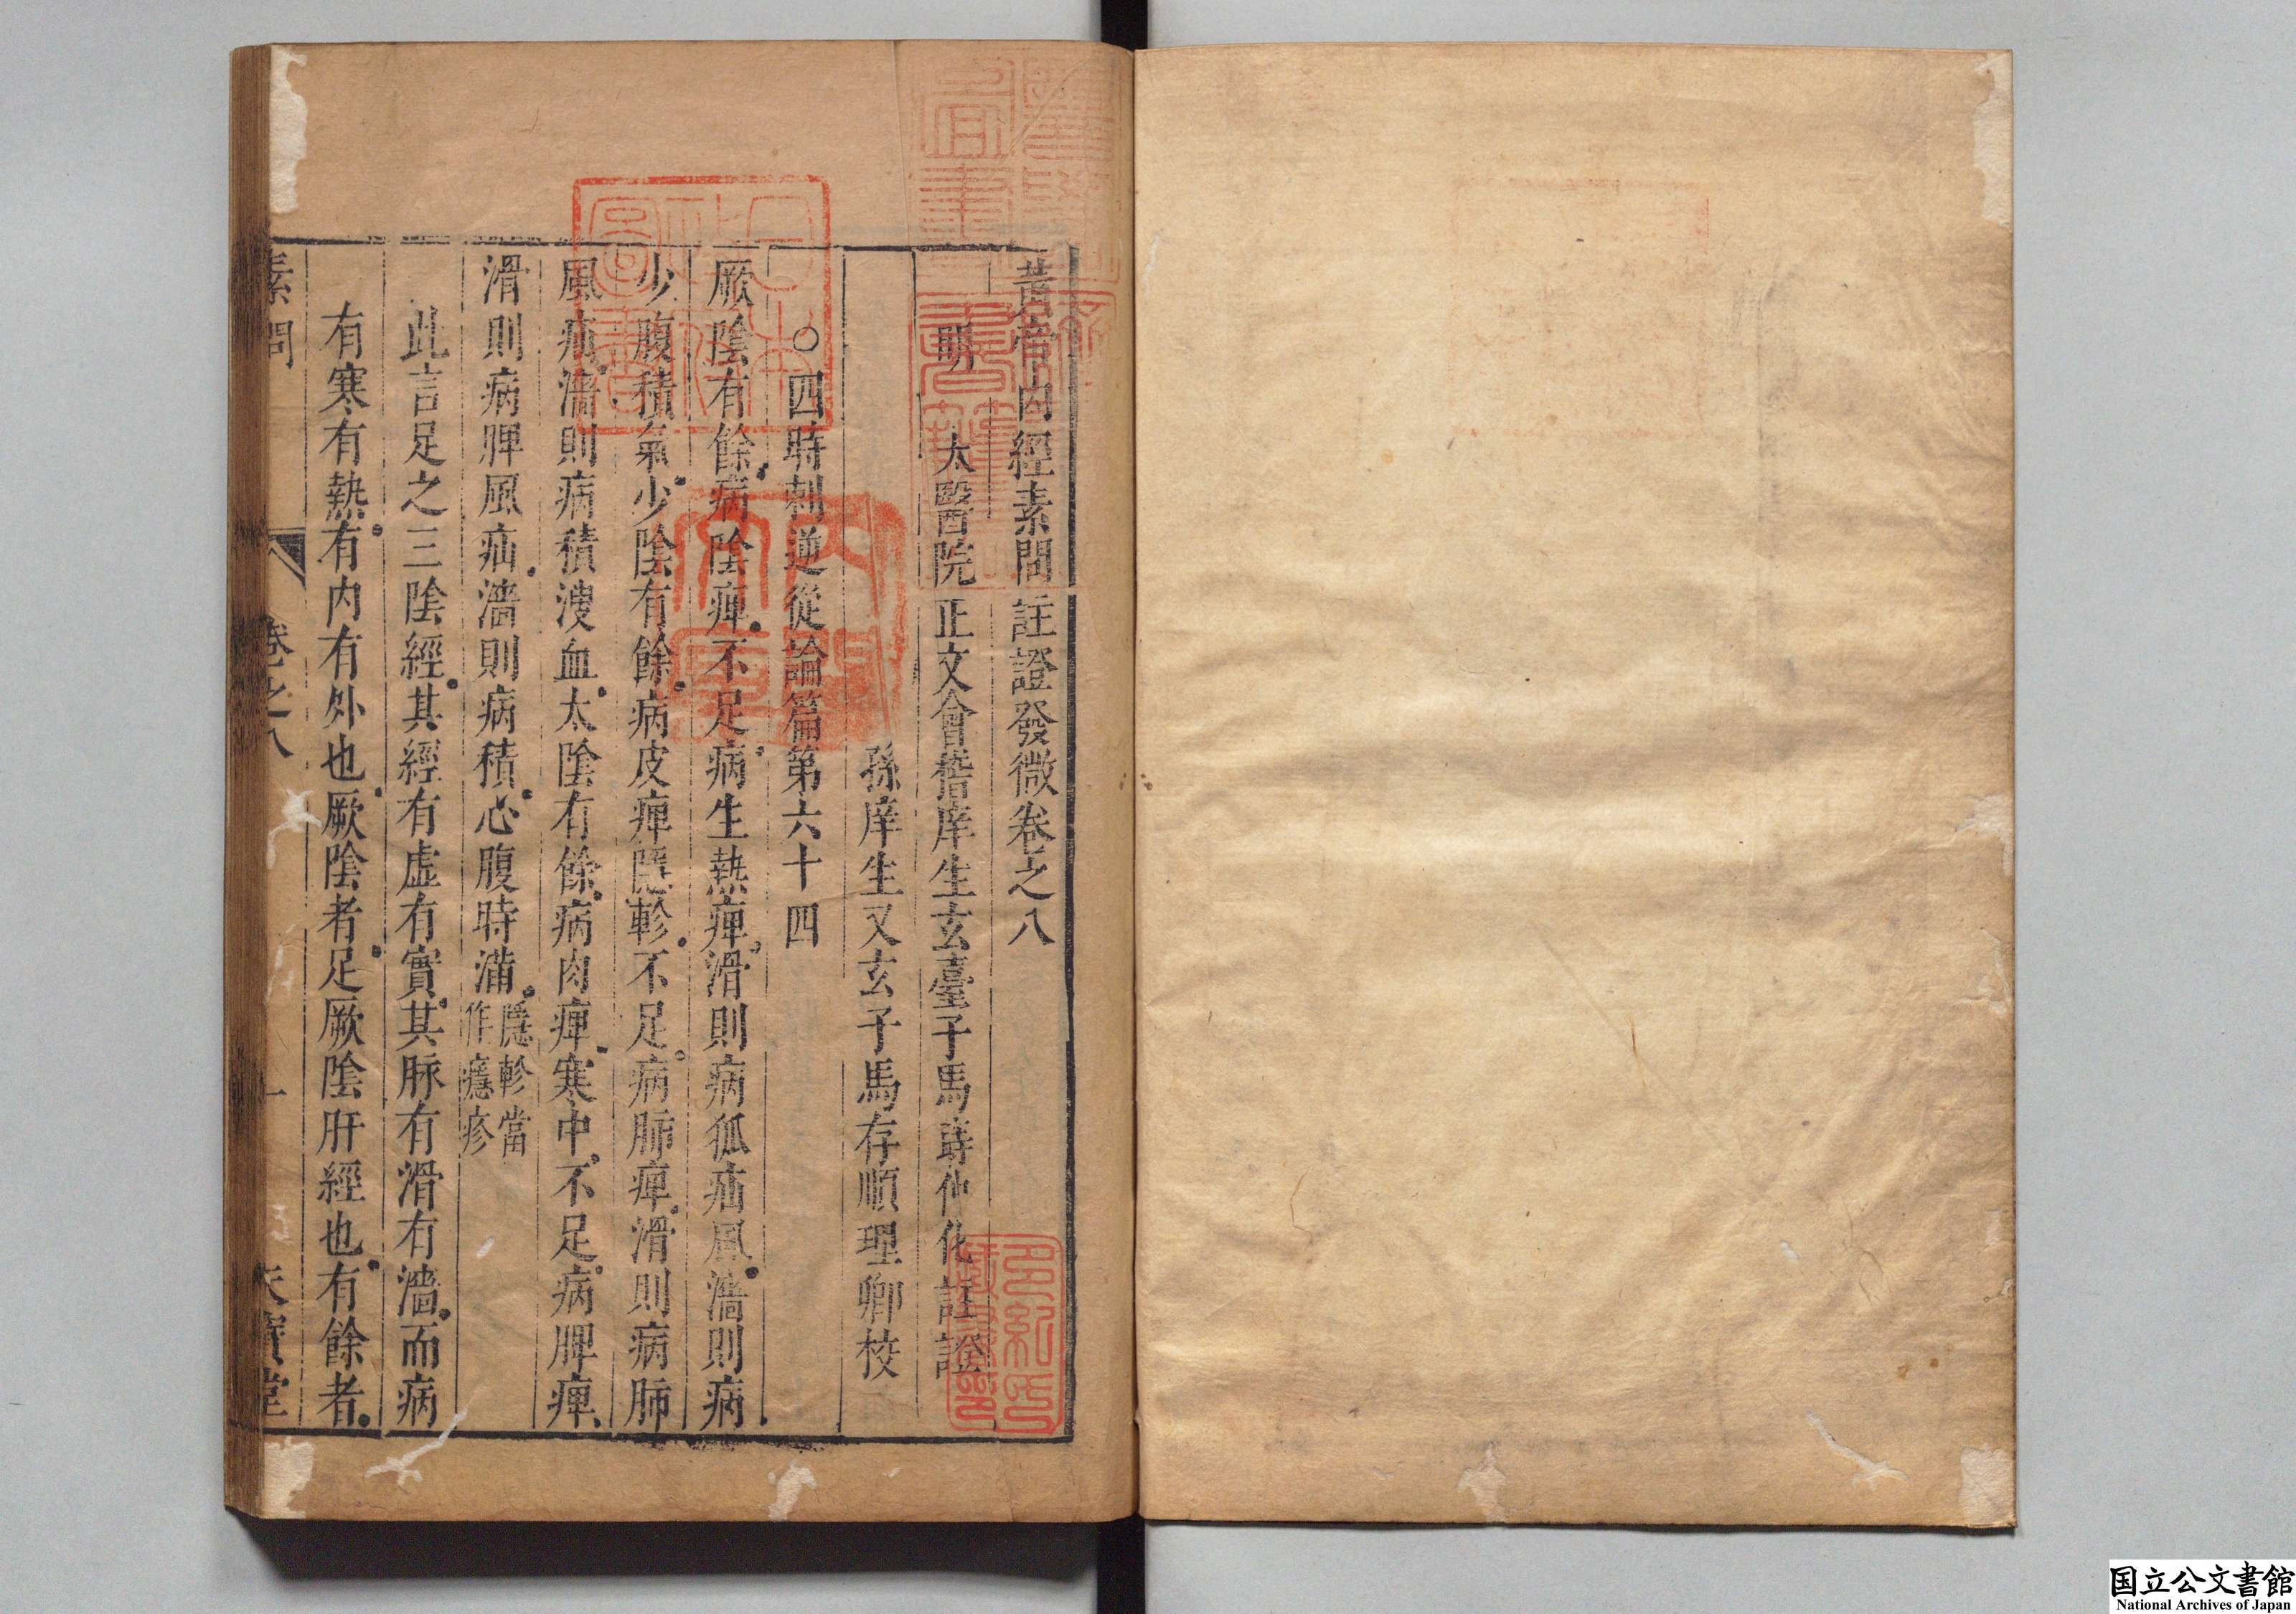 黃帝內經素問註證發微卷之八
明 太醫院正文會稽庠生玄臺子馬蒔仲化註證
孫庠生又玄子馬存順理卿校
○四時刺逆從論篇第六十四
厥陰有餘病陰痺不足病生熱痺滑則病狐疝風濇則病
少腹積氣少陰有餘病皮痺隱軫不足病肺痺滑則病肺
風疝濇則病積溲血太陰有餘病肉痺寒中不足病脾痺
滑則病脾風疝濇則病積心腹時滿隱軫當作癮疹
此言足之三陰經其經有虛有實其脉有滑有濇而病
有寒有熱有內有外也厥陰者足厥陰肝經也有餘者
素問 卷之八 一 天寶堂
国立公文書館
National Archives of Japan